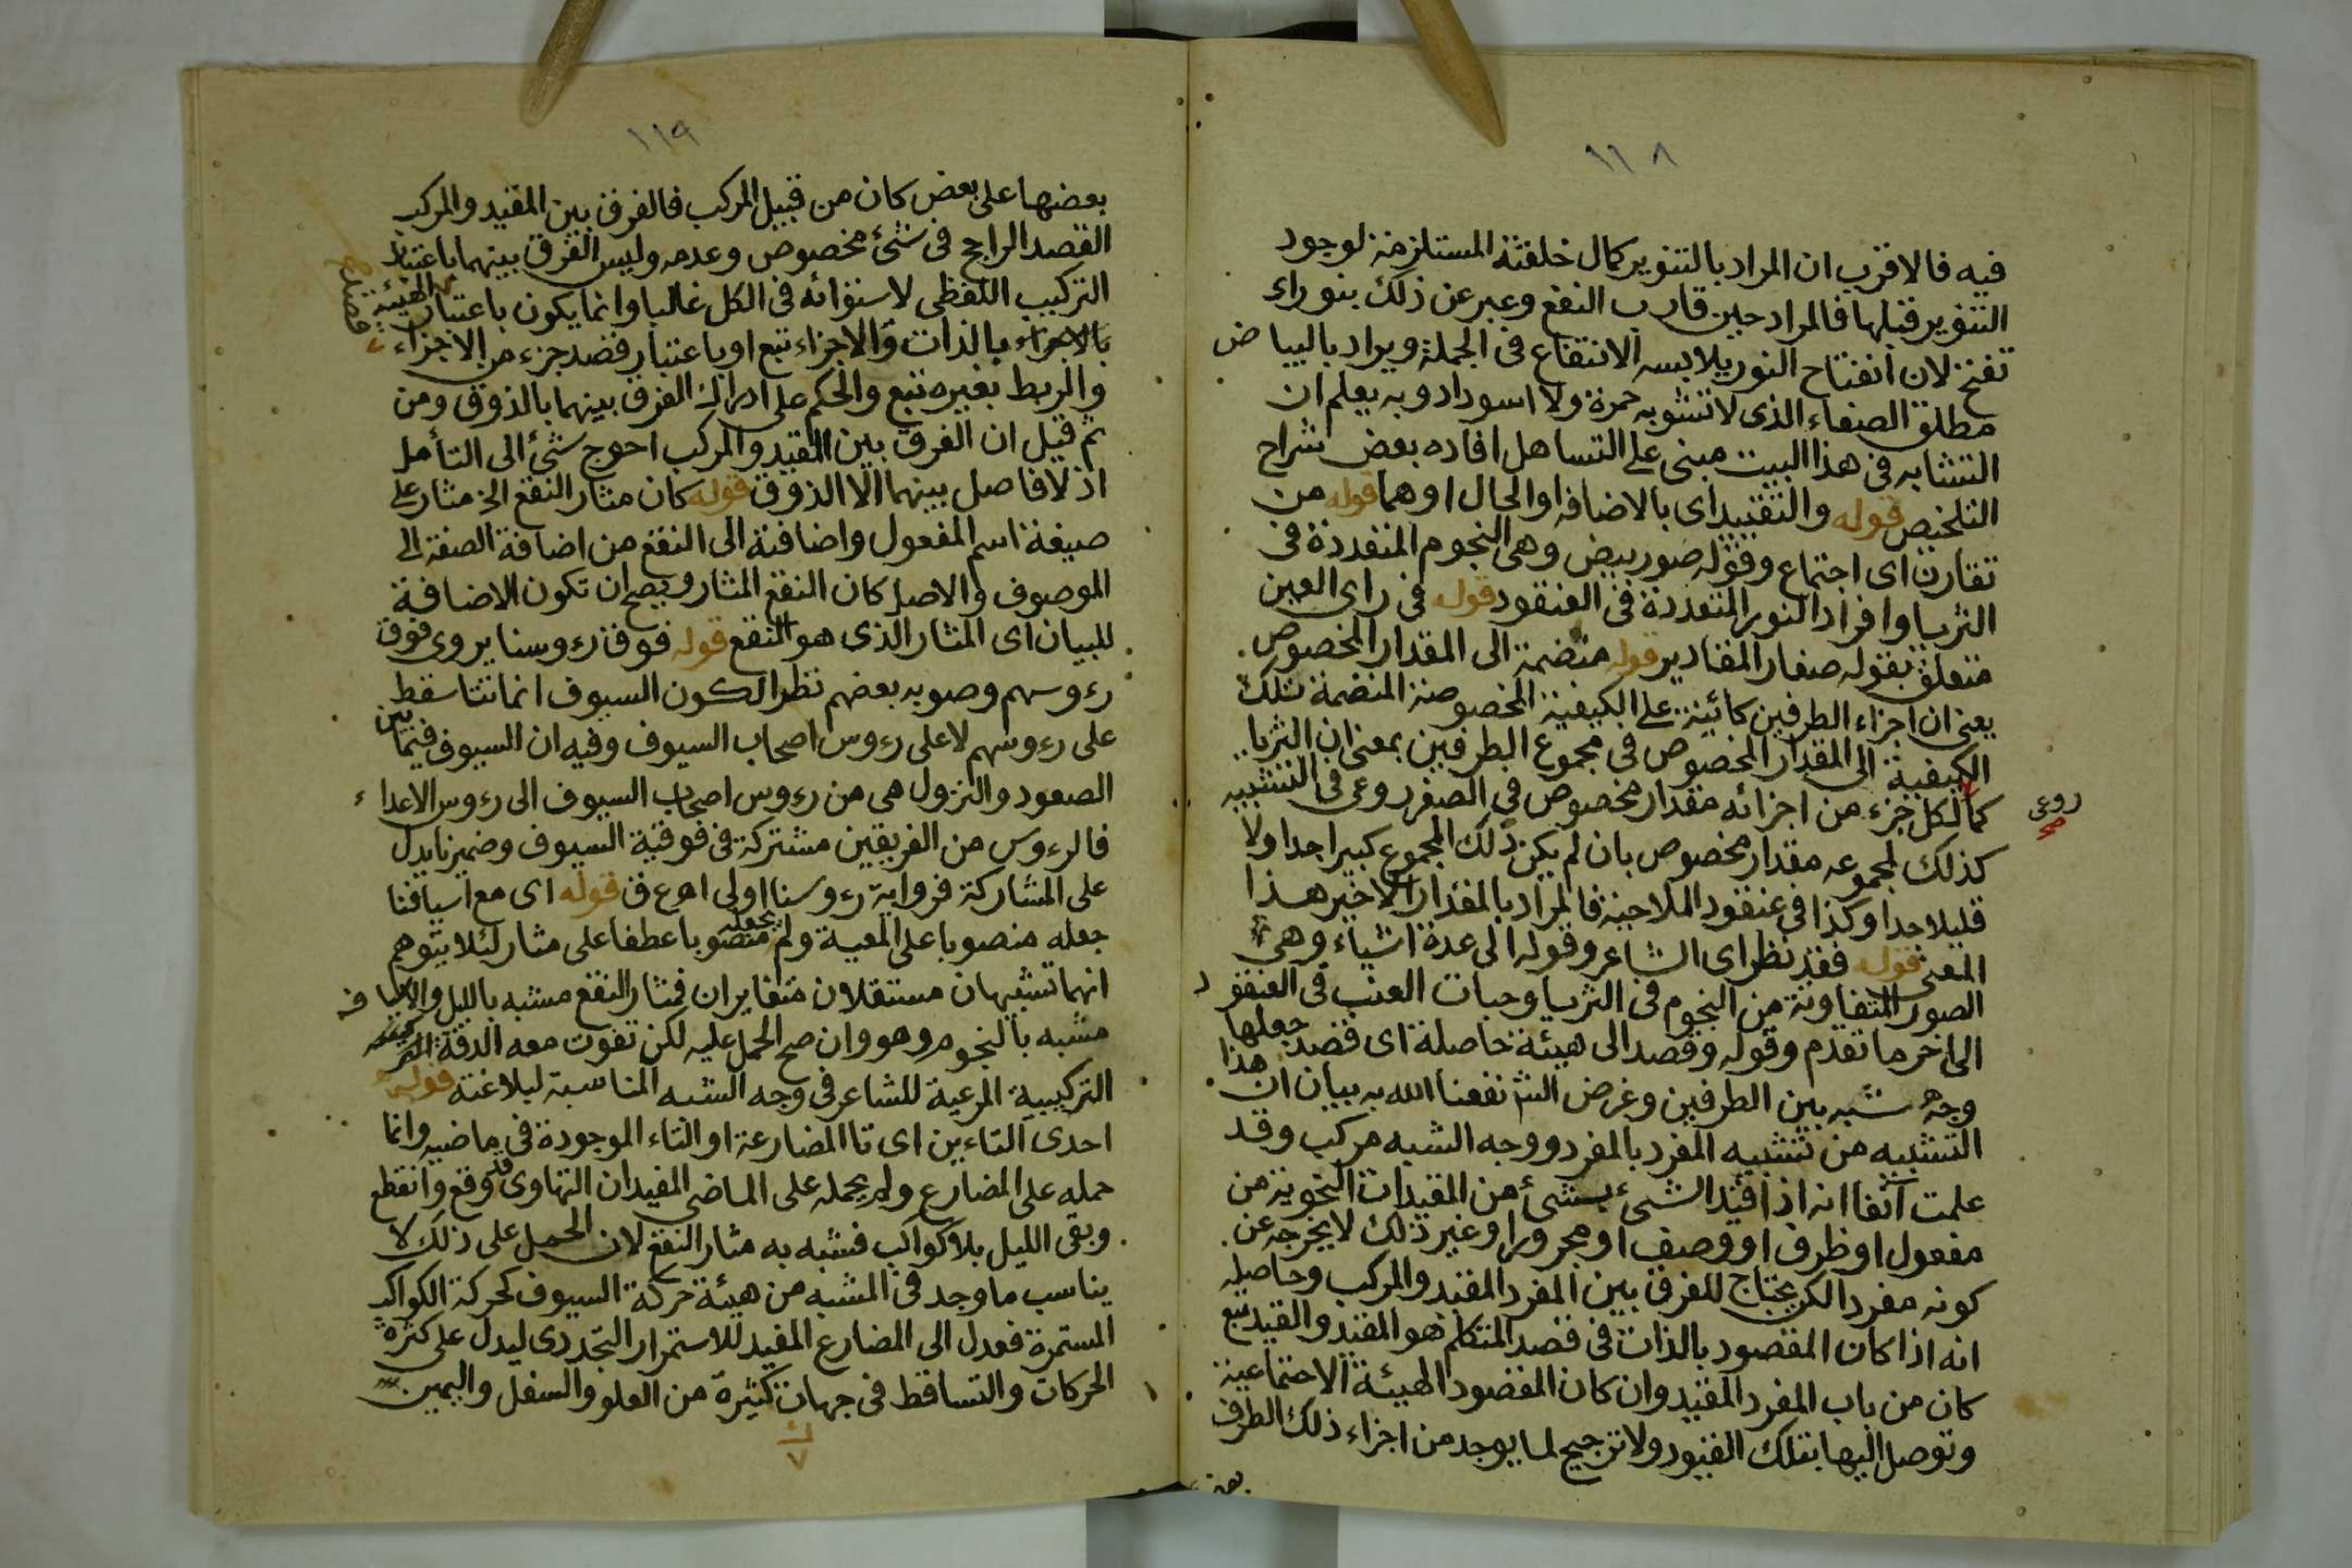 ١١٨
فيه فالاقرب ان المراد بالتنوير كمال خلقته المستلزمة لوجود
التنوير قبلها فالمراد حين قارب النفع وعبر عن ذلك بنورا
تفتح لان انفتاح النور يلابسه الانتفاع فى الجملة ويراد بالبياض
مطلق الصفاء الذى لا تشوبه حمرة ولا اسوداد وبه يعلم ان
التشابه فى هذا البيت مبنى على التساهل افاده بعض شراح
التلخيص قوله والتقييد اى بالاضافه او الحال او هما قوله من
تقارن اى اجتماع وقوله صور بيض وهى النجوم المتعددة فى
الثريا وافراد النور المتعددة فى العنقود قوله فى راى العين
متعلق بقوله صغار المقادير قوله منضمة الى المقدار المخصوص
يعنى ان اجزاء الطرفين كائنة على الكيفية المخصوصة المنضمة تلك
الكيفية الى المقدار المخصوص فى مجموع الطرفين بمعنى ان الثريا
كما لكل جزء من اجزائه مقدار مخصوص فى الصغر روعى فى التشبيه
روعى
صح
كذلك لمجموعه مقدار مخصوص بان لم يكن ذلك المجموع كبيرا جدا ولا
قليلا جدا وكذا فى عنقود الملاحية فالمراد بالمقدار الاخير هذا
المعنى قوله فقد نظر اى الشاعر وقوله الى عدة اشياء وهى
الصور المتفاوتة من النجوم فى الثريا وحبات العنب فى العنقود
الى اخر ما تقدم وقوله وقصد الى هيئة حاصلة اى قصد جعلها
وجه شبه بين الطرفين وغرض الش نفعنا الله به بيان ان هذا
التشبيه من تشبيه المفرد بالمفرد ووجه الشبه مركب وقد
علمت آنفا انه اذا قيد الشىء بشىء من المقيدات النحوية من
مفعول او ظرف او وصف او مجرور او غير ذلك لا يخرجه عن
كونه مفردا لكن يحتاج للفرق بين المفرد المقيد والمركب وحاصله
انه اذا كان المقصود بالذات فى قصد المتكلم هو المقيد والقيد تبع
كان من باب المفرد المقيد وان كان المقصود الهيئة الاجتماعية
وتوصل اليها بتلك القيود ولا ترجيح لما يوجد من اجزاء ذلك الطرف
بعض
١١٩
بعضها على بعض كان من قبيل المركب فالفرق بين المقيد والمركب
القصد الراجح فى شىء مخصوص وعدمه وليس الفرق بينهما باعتبار
التركيب اللفظى لاستوائه فى الكل غالبا وانما يكون باعتبار الهيئة
بالاجزاء بالذات والاجزاء تبع او باعتبار قصد جزء من الاجزاء
والربط بغيره تبع والحكم على ادراك الفرق بينهما بالذوق ومن
ثم قيل ان الفرق بين المقيد والمركب احوج شىء الى التأمل
اذ لا فاصل بينهما الا الذوق قوله كان مثار النقع الخ مثار على
صيغة اسم المفعول واضافته الى النقع من اضافة الصفة الى
الموصوف والاصل كان النقع المثار ويصح ان تكون الاضافة
للبيان اى المثار الذى هو النقع قوله فوق رءوسنا يروى فوق
رءوسهم وصوبه بعضهم نظرا لكون السيوف انما تتساقط
على رءوسهم لا على رءوس اصحاب السيوف وفيه ان السيوف فيما بين
الصعود والنزول هى من رءوس اصحاب السيوف الى رءوس الاعداء
فالرءوس من الفريقين مشتركة فى فوقية السيوف وضمير نا يدل
على المشاركة فرواية رءوسنا اولى اهـ ع ق قوله اى مع اسيافنا
جعله منصوبا على المعية ولم يجعله منصوبا عطفا على مثار لئلا يتوهم
انهما تشبيهان مستقلان متغايران فمثار النقع مشبه بالليل والاسياف
مشبه بالنجوم وهو وان صح الحمل عليه لكن تفوت معه الدقة
التركيبية المرعية للشاعر فى وجه الشبه المناسبة لبلاغته قوله
احدى التاءين اى تا المضارعة او التاء الموجودة فى ماضيه وانما
حمله على المضارع ولم يحمله على الماضى المفيد ان التهاوى قد وقع وانقطع
وبقى الليل بلا كواكب فشبه به مثار النقع لان الحمل على ذلك لا
يناسب ما وجد فى المشبه من هيئة حركة السيوف كحركة الكواكب
المستمرة فعدل الى المضارع المفيد للاستمرار التجددى ليدل على كثرة
الحركات والتساقط فى جهات كثيرة من العلو والسفل واليمين
ك
٧